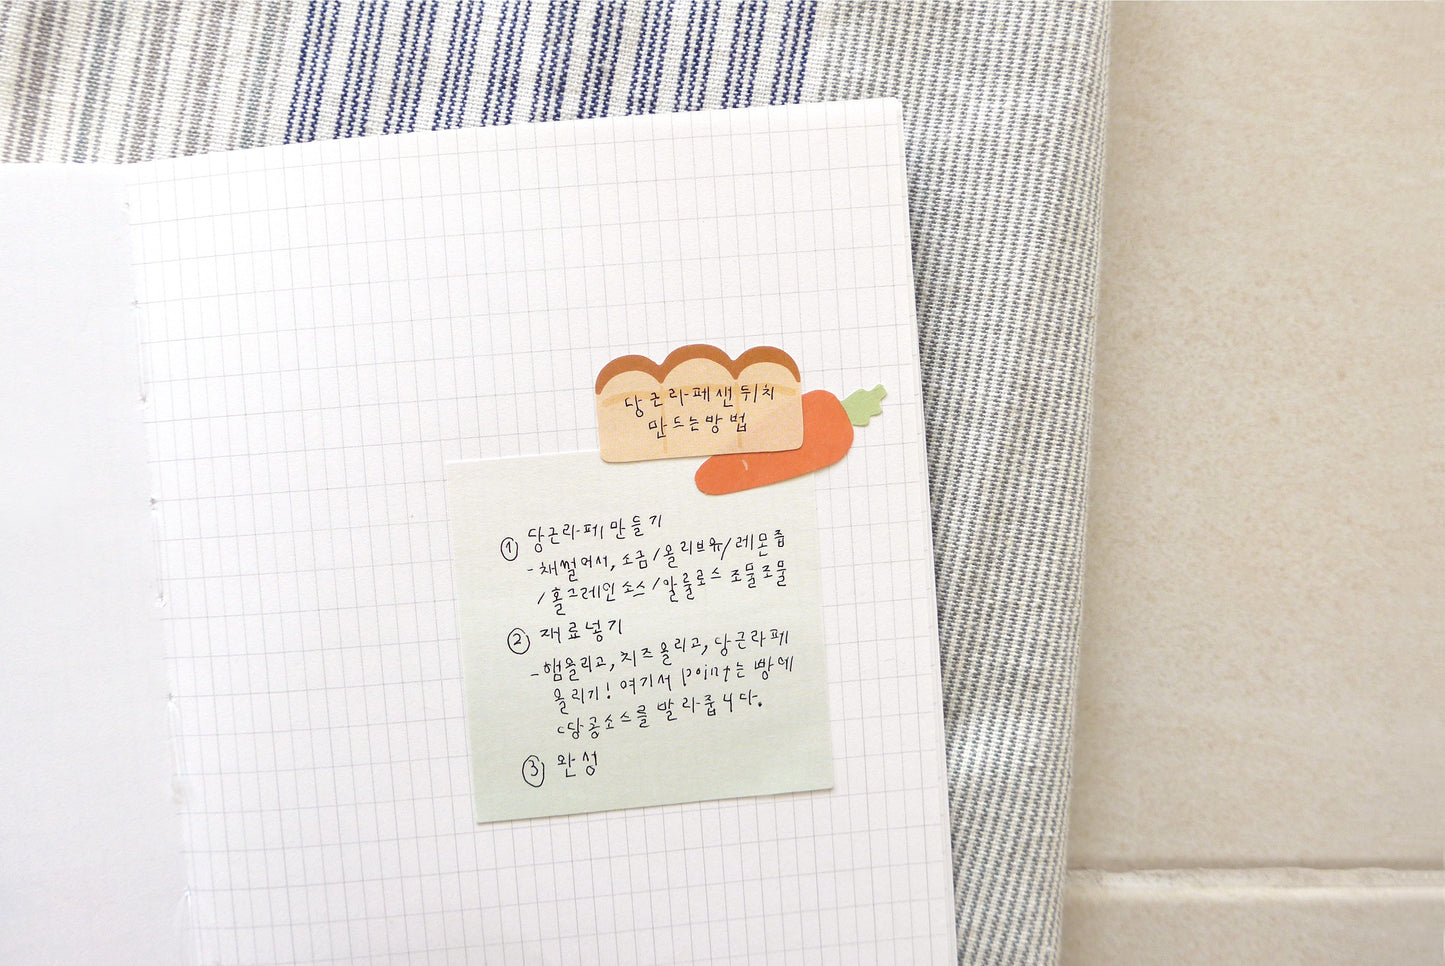 당근라페샌뒤치
만드는방법
① 당근라페만들기
- 채썰어서, 소금/올리브유/레몬즙
/홀그레인소스/알룰로스 조물조물
② 재료넣기
- 햄올리고, 치즈올리고, 당근라페
올리기! 여기서 point는 빵에
땅콩소스를 발라줍니다.
③ 완성